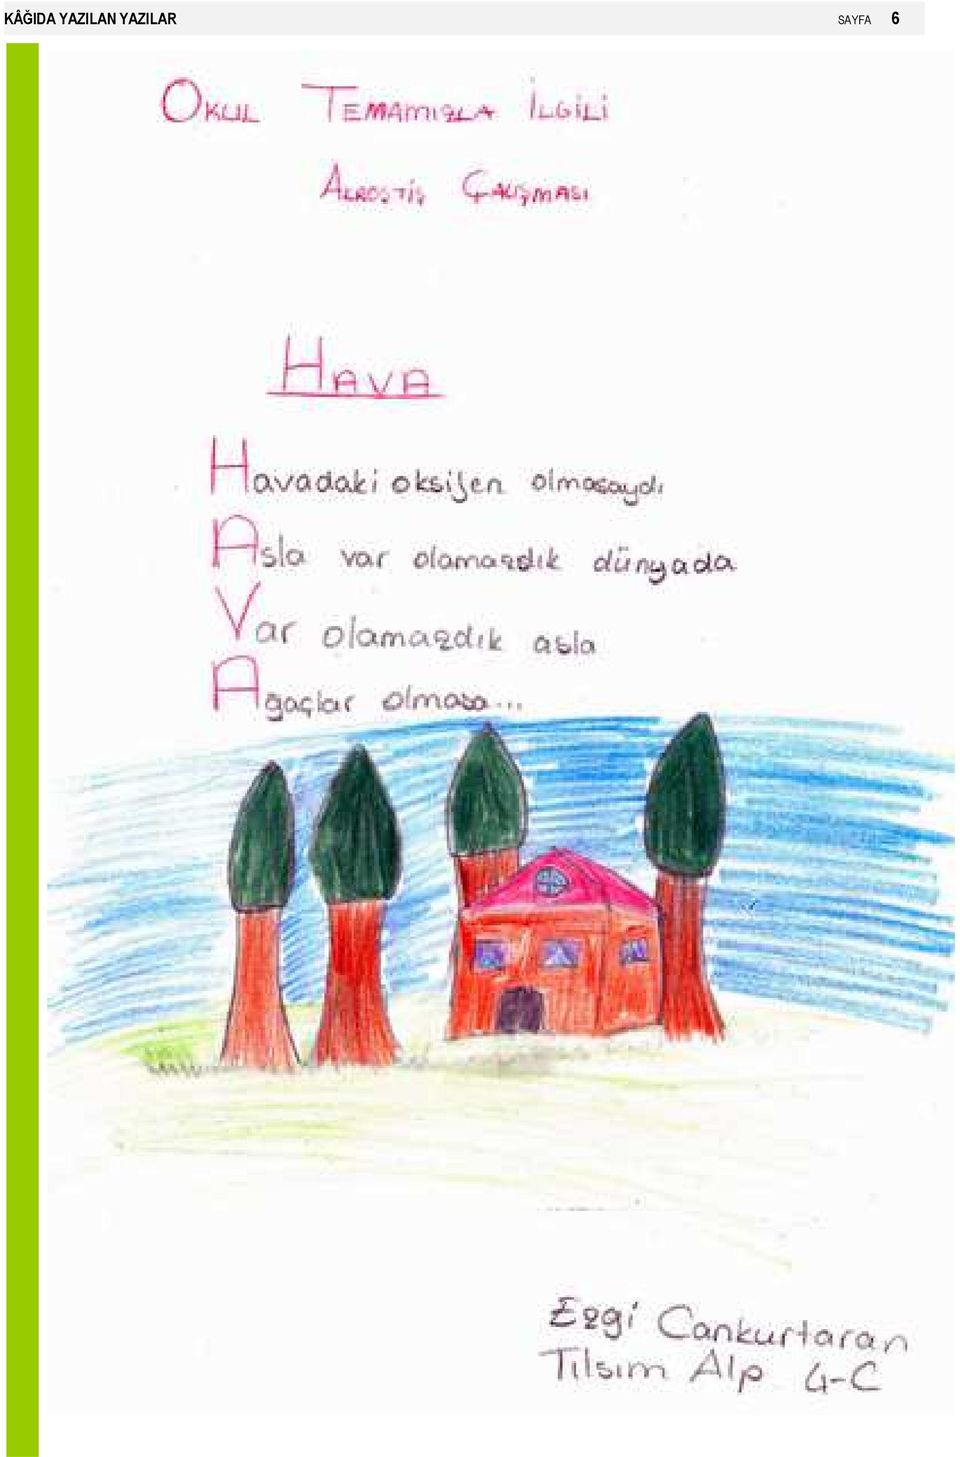 KÂĞIDA YAZILAN YAZILAR SAYFA 6
OKUL TEMAMIZLA İLGİLİ
AKROSTİŞ ÇALIŞMASI
HAVA
Havadaki oksijen olmasaydı
Asla var olamazdık dünyada
Var olamazdık asla
Ağaçlar olmasa...
Ezgi Cankurtaran
Tılsım Alp 4-C